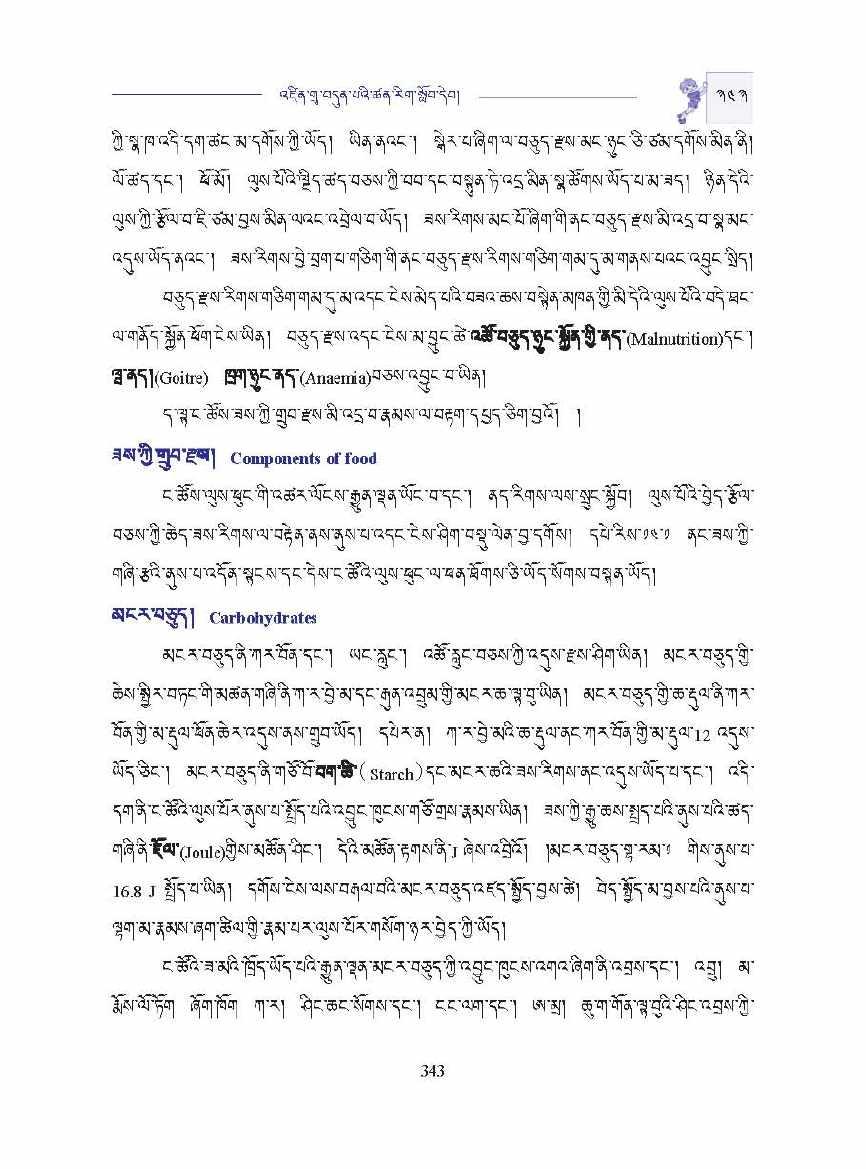 འཛིན་གྲྭ་བདུན་པའི་ཚན་རིག་སློབ་དེབ།
༣༤༣
ཀྱི་སྣ་ཁ་འདི་དག་ཚང་མ་དགོས་ཀྱི་ཡོད། ཡིན་ནའང་། སྒེར་པ་ཞིག་ལ་བཅུད་རྫས་མང་ཉུང་ཅི་ཙམ་དགོས་མིན་ནི།
ལོ་ཚད་དང་། ཕོ་མོ། ལུས་པོའི་ལྗིད་ཚད་བཅས་ཀྱི་བབ་དང་བསྟུན་ཏེ་འདྲ་མིན་སྣ་ཚོགས་ཡོད་པ་མ་ཟད། ཉིན་དེའི་
ལུས་ཀྱི་རྩོལ་བ་ཇི་ཙམ་བྱས་མིན་ལའང་འབྲེལ་བ་ཡོད། ཟས་རིགས་མང་པོ་ཞིག་གི་ནང་བཅུད་རྫས་མི་འདྲ་བ་སྣ་མང་
འདུས་ཡོད་ནའང་། ཟས་རིགས་བྱེ་བྲག་པ་གཅིག་གི་ནང་བཅུད་རྫས་རིགས་གཅིག་གམ་དུ་མ་གནས་པའང་འབྱུང་སྲིད།
བཅུད་རྫས་རིགས་གཅིག་གམ་དུ་མ་འདང་ངེས་མེད་པའི་བཟའ་ཆས་བསྟེན་མཁན་གྱི་མི་དེའི་ལུས་པོའི་བདེ་ཐང་
ལ་གནོད་སྐྱོན་ཕོག་ངེས་ཡིན། བཅུད་རྫས་འདང་ངེས་མ་བྱུང་ཚེ་འཚོ་བཅུད་ཉུང་སྐྱོན་གྱི་ནད་(Malnutrition)དང་།
ལྦ་ནད།(Goitre) ཁྲག་ཉུང་ནད་(Anaemia)བཅས་འབྱུང་བ་ཡིན།
ད་ལྟ་ང་ཚོས་ཟས་ཀྱི་གྲུབ་རྫས་མི་འདྲ་བ་རྣམས་ལ་བརྟག་དཔྱད་ཅིག་བྱའོ། །
ཟས་ཀྱི་གྲུབ་རྫས། Components of food
ང་ཚོས་ལུས་ཕུང་གི་འཚར་ལོངས་རྒྱུན་ལྡན་ཡོང་བ་དང་། ནད་རིགས་ལས་སྲུང་སྐྱོབ། ལུས་པོའི་བྱེད་རྩོལ་
བཅས་ཀྱི་ཆེད་ཟས་རིགས་ལ་བརྟེན་ནས་ནུས་པ་འདང་ངེས་ཤིག་བསྡུ་ལེན་བྱ་དགོས། དཔེ་རིས་༡༤.༡ ནང་ཟས་ཀྱི་
གཞི་རྩའི་ནུས་པ་འདོན་སྟངས་དང་དེས་ང་ཚོའི་ལུས་ཕུང་ལ་ཕན་ཐོགས་ཅི་ཡོད་སོགས་བསྟན་ཡོད།
མངར་བཅུད། Carbohydrates
མངར་བཅུད་ནི་ཀར་བོན་དང་། ཡང་རླུང་། འཚོ་རླུང་བཅས་ཀྱི་འདུས་རྫས་ཤིག་ཡིན། མངར་བཅུད་ཀྱི་
ཆེས་སྤྱིར་བཏང་གི་མཚན་གཞི་ནི་ཀ་ར་བྱེ་མ་དང་རྒུན་འབྲུམ་གྱི་མངར་ཆ་ལྟ་བུ་ཡིན། མངར་བཅུད་ཀྱི་ཆ་རྡུལ་ནི་ཀར་
བོན་གྱི་མ་རྡུལ་ཕོན་ཆེར་འདུས་ནས་གྲུབ་ཡོད། དཔེར་ན། ཀ་ར་བྱེ་མའི་ཆ་རྡུལ་ནང་ཀར་བོན་གྱི་མ་རྡུལ་12 འདུས་
ཡོད་ཅིང་། མངར་བཅུད་ནི་གཙོ་བོ་བག་ཚི་( Starch)དང་མངར་ཆའི་ཟས་རིགས་ནང་འདུས་ཡོད་པ་དང་། འདི་
དག་ནི་ང་ཚོའི་ལུས་པོར་ནུས་པ་སྤྲོད་པའི་འབྱུང་ཁུངས་གཙོ་གྲས་རྣམས་ཡིན། ཟས་ཀྱི་རྒྱུ་ཆས་སྤྲད་པའི་ནུས་པའི་ཚད་
གཞི་ནི་ཇོལ་(Joule)གྱིས་མཚོན་ཤིང་། དེའི་མཚོན་རྟགས་ནི་J ཞེས་འབྲིའོ། །མངར་བཅུད་གྷ་རམ་༡ གིས་ནུས་པ་
16.8 J སྤྲོད་པ་ཡིན། དགོས་ངེས་ལས་བརྒལ་བའི་མངར་བཅུད་འཛད་སྤྱོད་བྱས་ཚེ། བེད་སྤྱོད་མ་བྱས་པའི་ནུས་པ་
ལྷག་མ་རྣམས་ཞག་ཚིལ་གྱི་རྣམ་པར་ལུས་པོར་གསོག་ཉར་བྱེད་ཀྱི་ཡོད།
ང་ཚོའི་ཟ་མའི་ཁྲོད་ཡོད་པའི་རྒྱུན་ལྡན་མངར་བཅུད་ཀྱི་འབྱུང་ཁུངས་འགའ་ཞིག་ནི་འབྲས་དང་། འབྲུ། མ་
རྨོས་ལོ་ཏོག ཞོག་ཁོག ཀ་ར། ཤིང་ཆང་སོགས་དང་། ངང་ལག་དང་། ཨ་མྲ། ཆུ་ག་གོན་ལྟ་བུའི་ཤིང་འབྲས་ཀྱི་
343